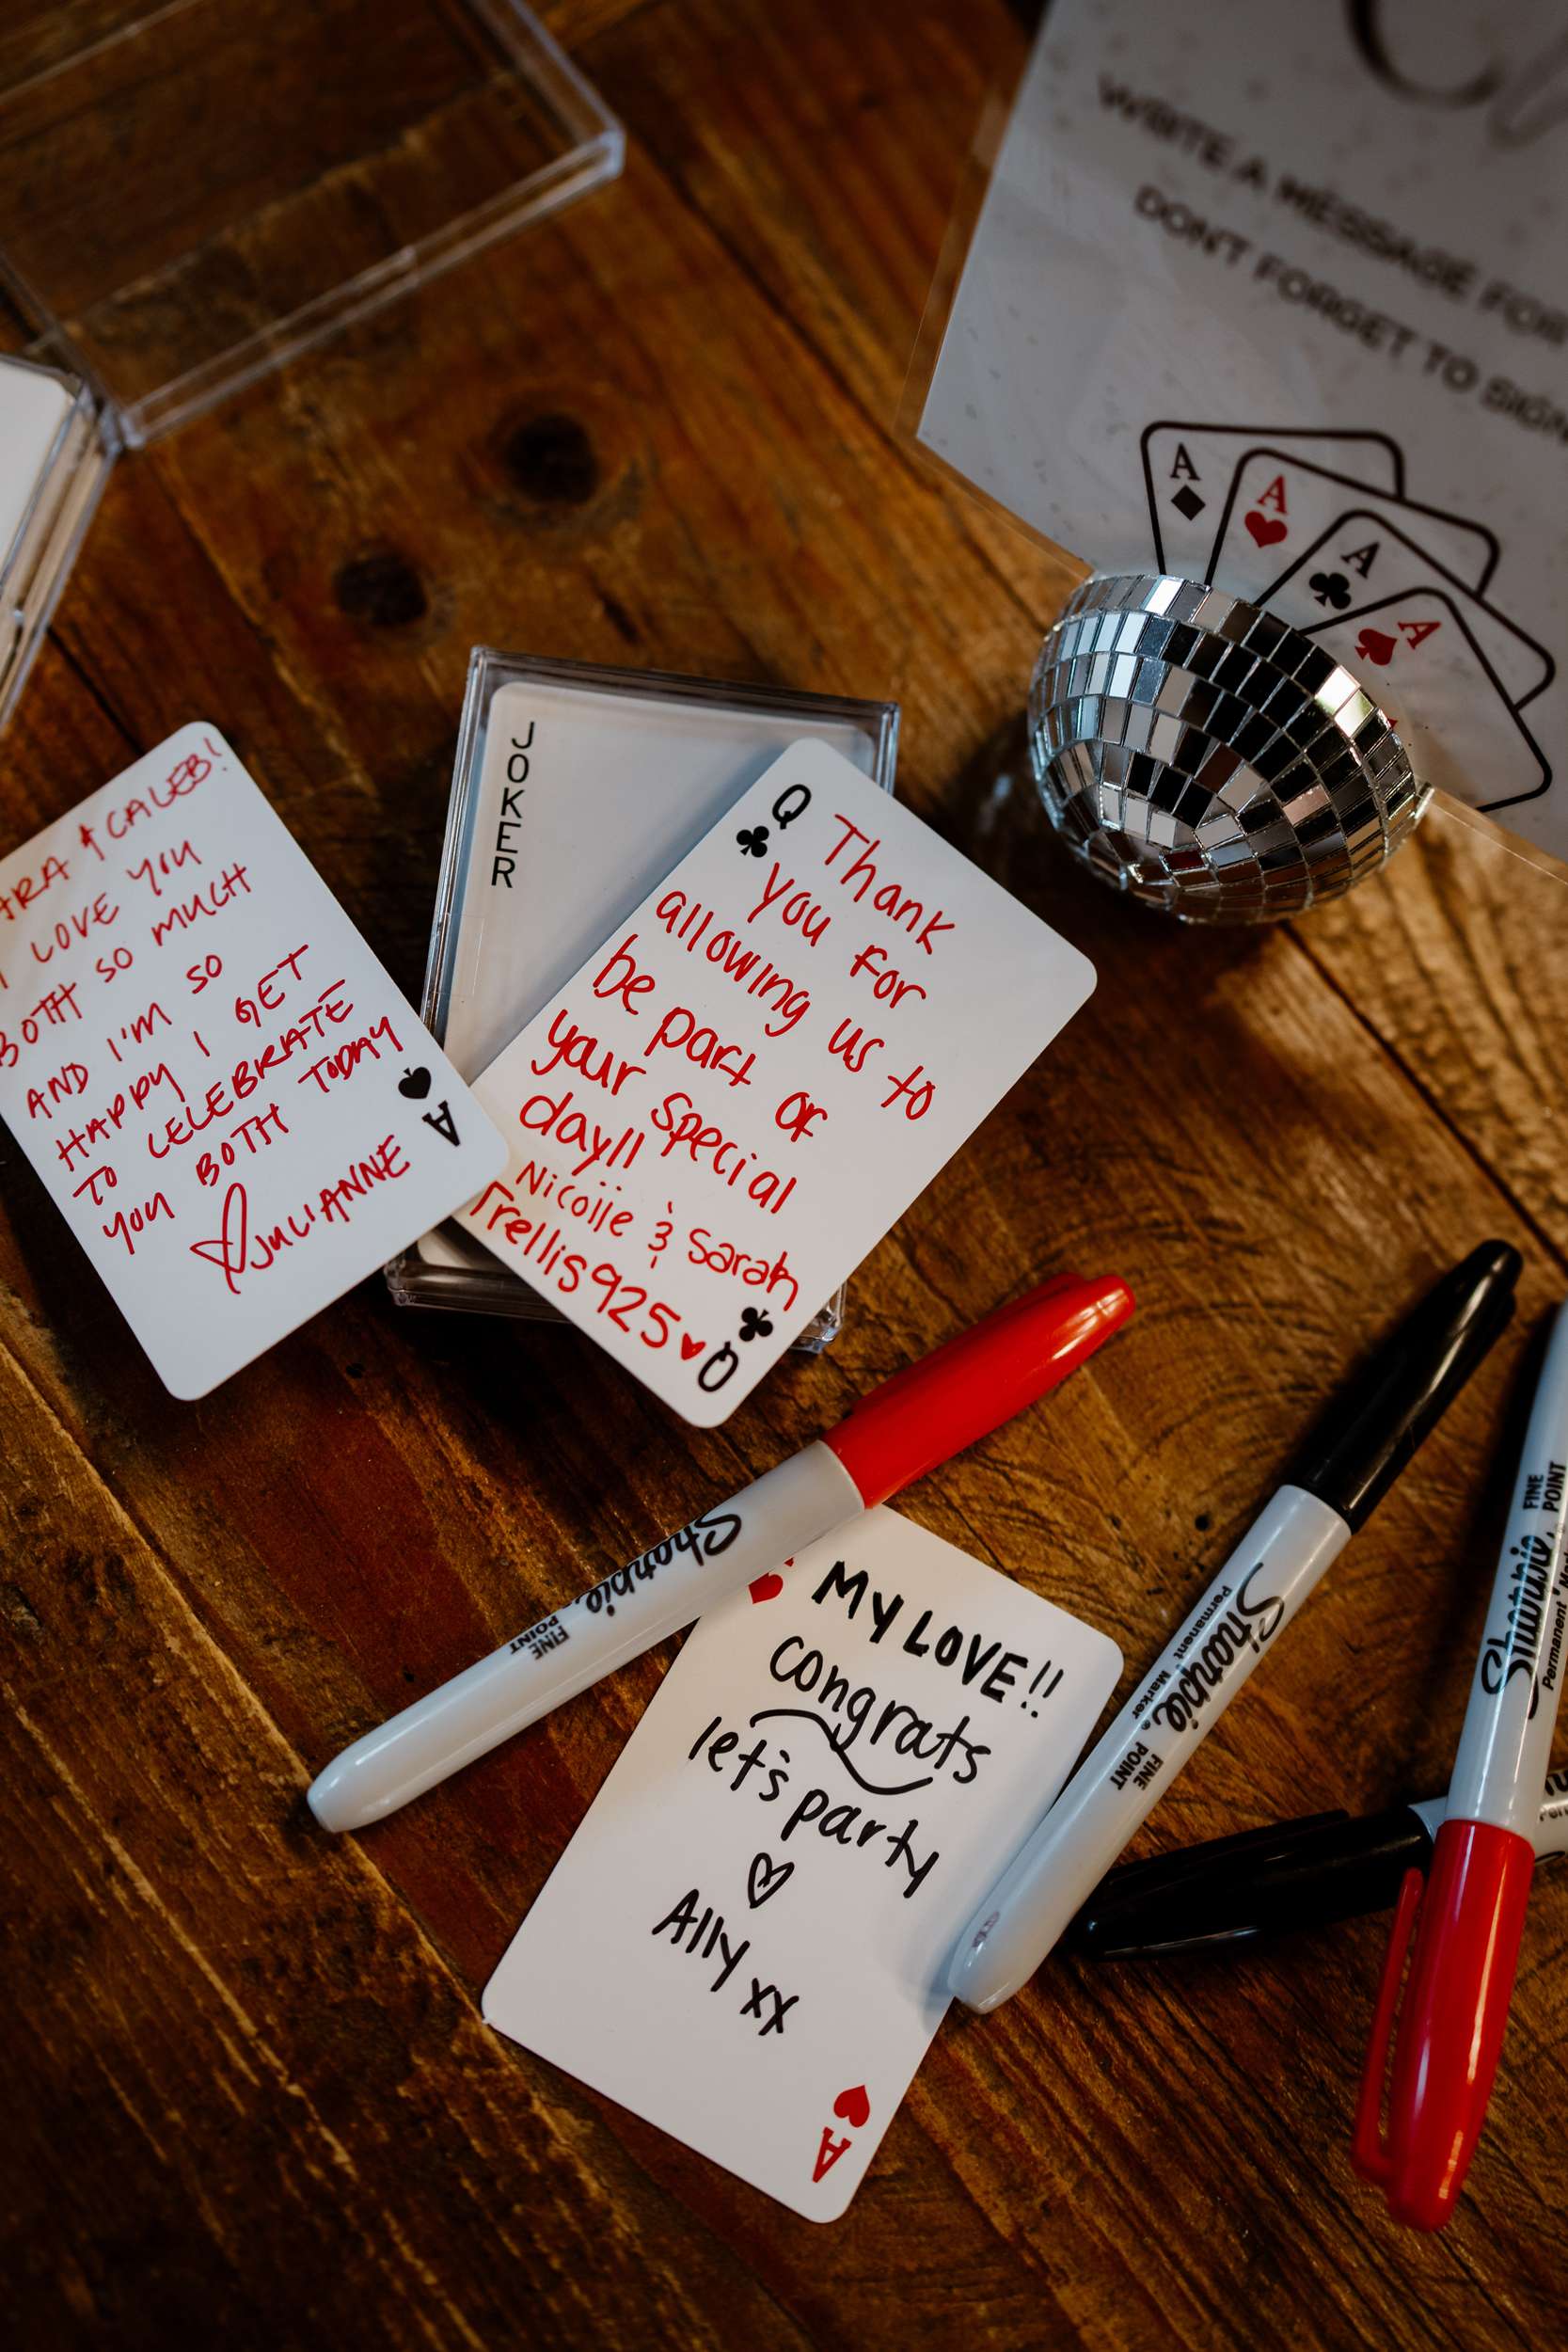 WRITE A MESSAGE FOR
DON'T FORGET TO SIGN
A
A
A
A
JOKER
& CALEB!
I LOVE YOU
BOTH SO MUCH
AND I'M SO
HAPPY I GET
TO CELEBRATE
YOU BOTH TODAY
JULIANNE
A
Q
Thank
you for
allowing us to
be part of
your special
day!!
& Sarah
Trellis925
Q
Sharpie
FINE
POINT
MY LOVE!!
congrats
let's party
Ally xx
A
Sharpie
Permanent Marker
FINE
POINT
Sharpie
FINE
POINT
Permanent